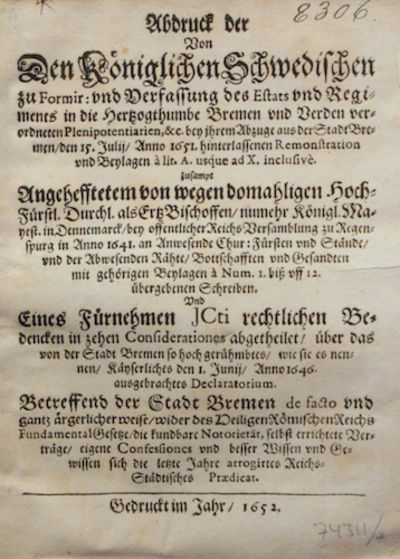 8306.
Abdruck der
Von
Den Königlichen Schwedischen
zu Formir: vnd Verfassung des Estats vnd Regi-
ments in die Hertzogthumbe Bremen vnd Verden ver-
ordneten Plenipotentiarien, &c. bey jhrem Abzuge aus der Stadt Bre-
men/den 15. Julij/ Anno 1651. hinterlassenen Remonstration
vnd Beylagen à lit. A. usque ad X. inclusivè.
zusampt
Angehefftetem von wegen domahligen Hoch-
Fürstl. Durchl. als Ertz Bischoffen/ numehr Königl. Ma-
yest. in Dennemarck/ bey offentlicher Reichs Versamblung zu Regen-
spurg in Anno 1641. an Anwesende Chur: Fürsten vnd Stände/
vnd der Abwesenden Rähte/ Bottschafften vnd Gesandten
mit gehörigen Beylagen à Num. 1. biß vff 12.
übergebenen Schreiben.
Vnd
Eines Fürnehmen JCti rechtlichen Be-
dencken in zehen Considerationes abgetheilet/ über das
von der Stadt Bremen so hoch gerühmbtes/ wie sie es nen-
nen/ Käyserliches den 1. Junij/ Anno 1646.
ausgebrachtes Declaratorium.
Betreffend der Stadt Bremen de facto vnd
gantz ärgerlicher weise/ wider des Heiligen Römischen Reichs
Fundamental Gesetze/ die kundbare Notorietät, selbst errichtete Ver-
träge/ eigene Confessiones vnd besser Wissen vnd Ge-
wissen sich die letzte Jahre arrogirtes Reichs-
Städtisches Prædicat.
Gedruckt im Jahr/ 1652.
74311/*